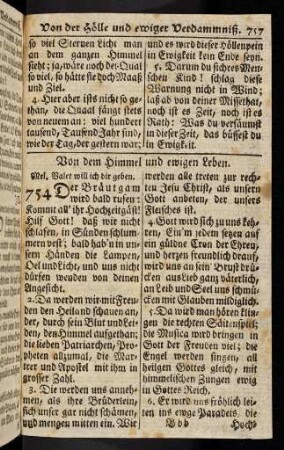 Von der Hölle und ewiger Verdammniß. 757
so viel Sternen Licht man
an dem ganzen Himmel
sieht; ja, wäre noch der Quaal
so viel, so hätte sie doch Maaß
und Ziel.
4. Hier aber ists nicht so ge-
than, die Quaal fängt stets
von neuem an: viel hundert
tausend, Tausend Jahr sind,
wie der Tag, der gestern war;
und es wird dieser Höllenpein
in Ewigkeit kein Ende seyn.
5. Darum du sichres Men-
schen Kind! schlag diese
Warnung nicht in Wind;
laß ab von deiner Missethat,
noch ist es Zeit, noch ist es
Rath: Was du versäumst
in dieser Zeit, das büssest du
in Ewigkeit.
Von dem Himmel und ewigen Leben.
Mel. Valet will ich dir geben.
754 Der Bräutgam
wird bald rufen:
Kommt all' ihr Hochzeitgäst!
Hilf Gott! daß wir nicht
schlafen, in Sünden schlum-
mern vest; bald hab'n in un-
sern Händen die Lampen,
Oel und Licht, und uns nicht
dürfen wenden von deinem
Angesicht.
2. Da werden wir mit Freu-
den den Heiland schauen an,
der, durch sein Blut und Lei-
den, den Himmel aufgethan;
die lieben Patriarchen, Pro-
pheten allzumal, die Mär-
trer und Apostel mit ihm in
grosser Zahl.
3. Die werden uns anneh-
men, als ihre Brüderlein,
sich unser gar nicht schämen,
und mengen mitten ein. Wir
werden alle treten zur rech-
ten Jesu Christ, als unsern
Gott anbeten, der unsers
Fleisches ist.
4. Gott wird sich zu uns keh-
ren, Ein'm jeden setzen auf
ein güldne Cron der Ehren,
und herzen freundlich drauf,
wird uns an sein' Brust drü-
cken aus Lieb ganz väterlich,
an Leib und Seel uns schmü-
cken mit Glauben mildiglich.
5. Da wird man hören klin-
gen die rechten Säitenspiel;
die Musica wird bringen in
Gott der Freuden viel; die
Engel werden singen, all
heilgen Gottes gleich, mit
himmelischen Zungen ewig
in Gottes Reich.
6. Er wird uns fröhlich lei-
ten ins ewge Paradeis, die
Bbb Hoch-